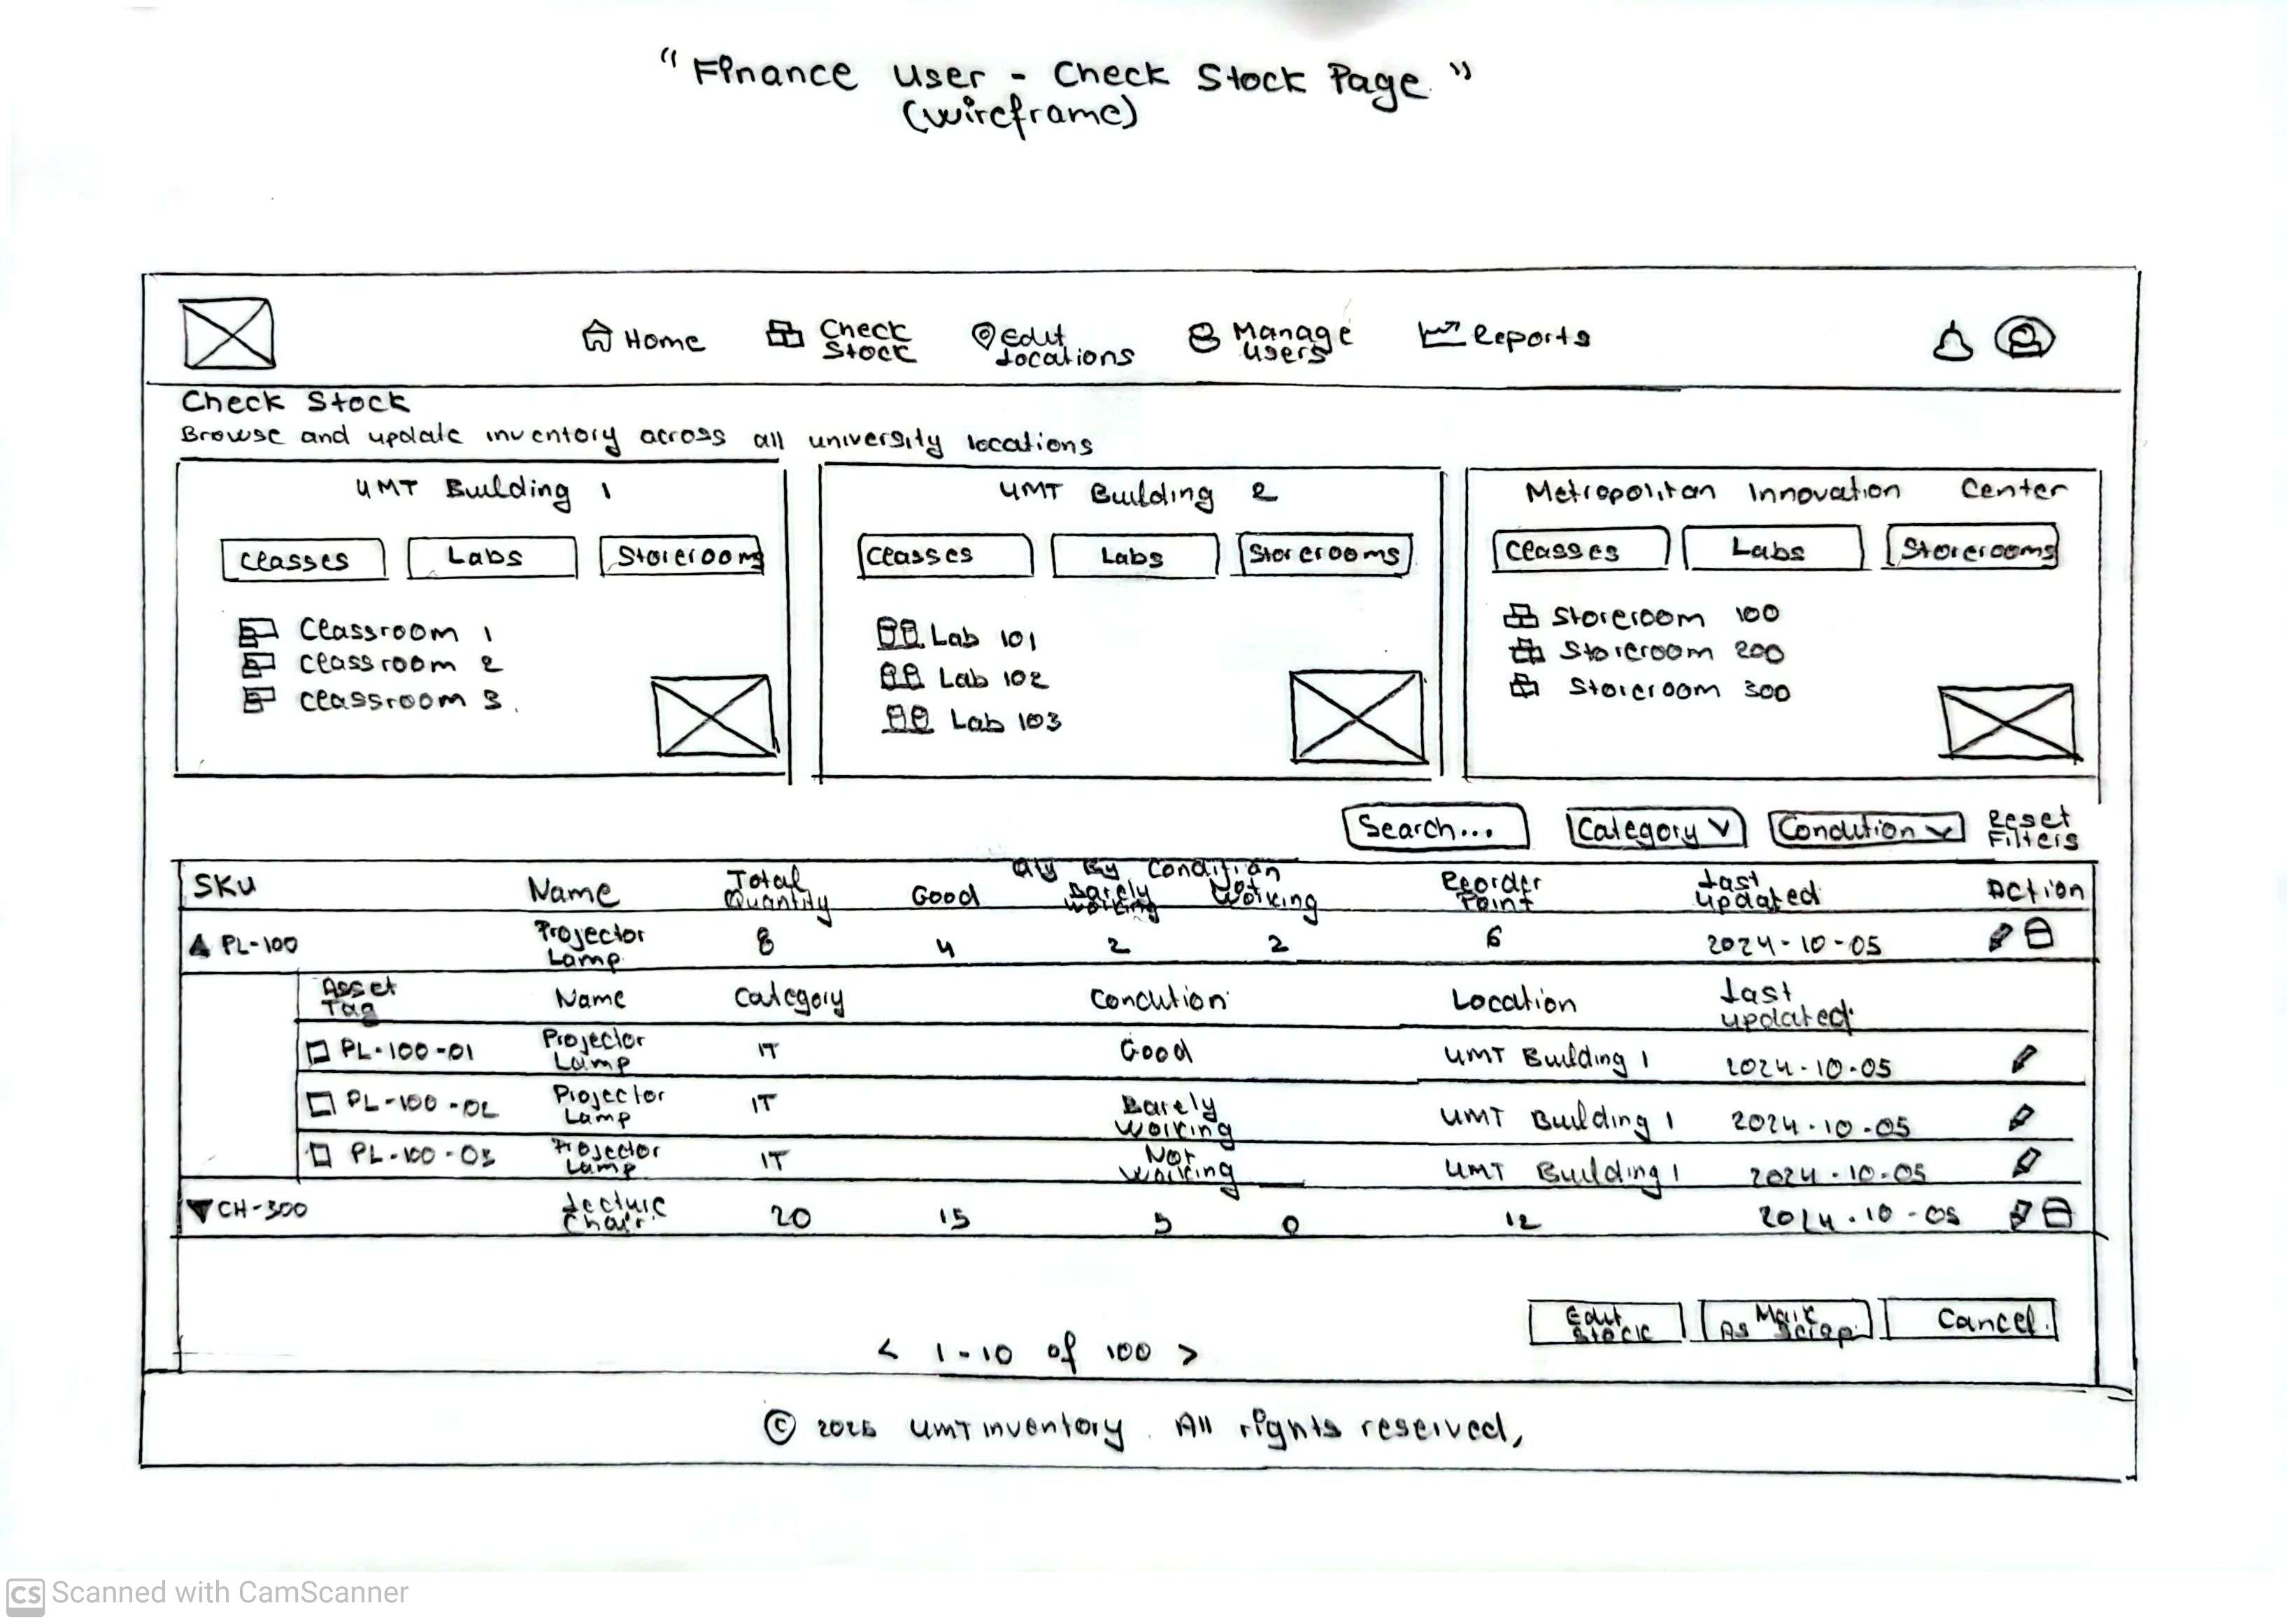 "Finance User - Check Stock Page."
(wireframe)
Home
Check Stock
Edit Locations
Manage Users
Reports
Check Stock
Browse and update inventory across all university locations
UMT Building 1
Classes Labs Storerooms
Classroom 1
Classroom 2
Classroom 3.
UMT Building 2
Classes Labs Storerooms
Lab 101
Lab 102
Lab 103
Metropolitan Innovation Center
Classes Labs Storerooms
Storeroom 100
Storeroom 200
Storeroom 300
Search... Category Condition Reset Filters
Qty By Condition
SKU Name Total Quantity Good Barely Working Not Working Reorder Point Last Updated Action
PL-100 Projector Lamp 8 4 2 2 6 2024-10-05
Asset Tag Name Category Condition Location Last Updated
PL-100-01 Projector Lamp IT Good UMT Building 1 2024-10-05
PL-100-02 Projector Lamp IT Barely Working UMT Building 1 2024-10-05
PL-100-03 Projector Lamp IT Not Working UMT Building 1 2024-10-05
CH-300 Lecture Chair 20 15 5 0 12 2024-10-05
Edit Stock Mark As Scrap Cancel.
< 1-10 of 100 >
© 2025 UMT inventory. All rights reserved,
CS Scanned with CamScanner